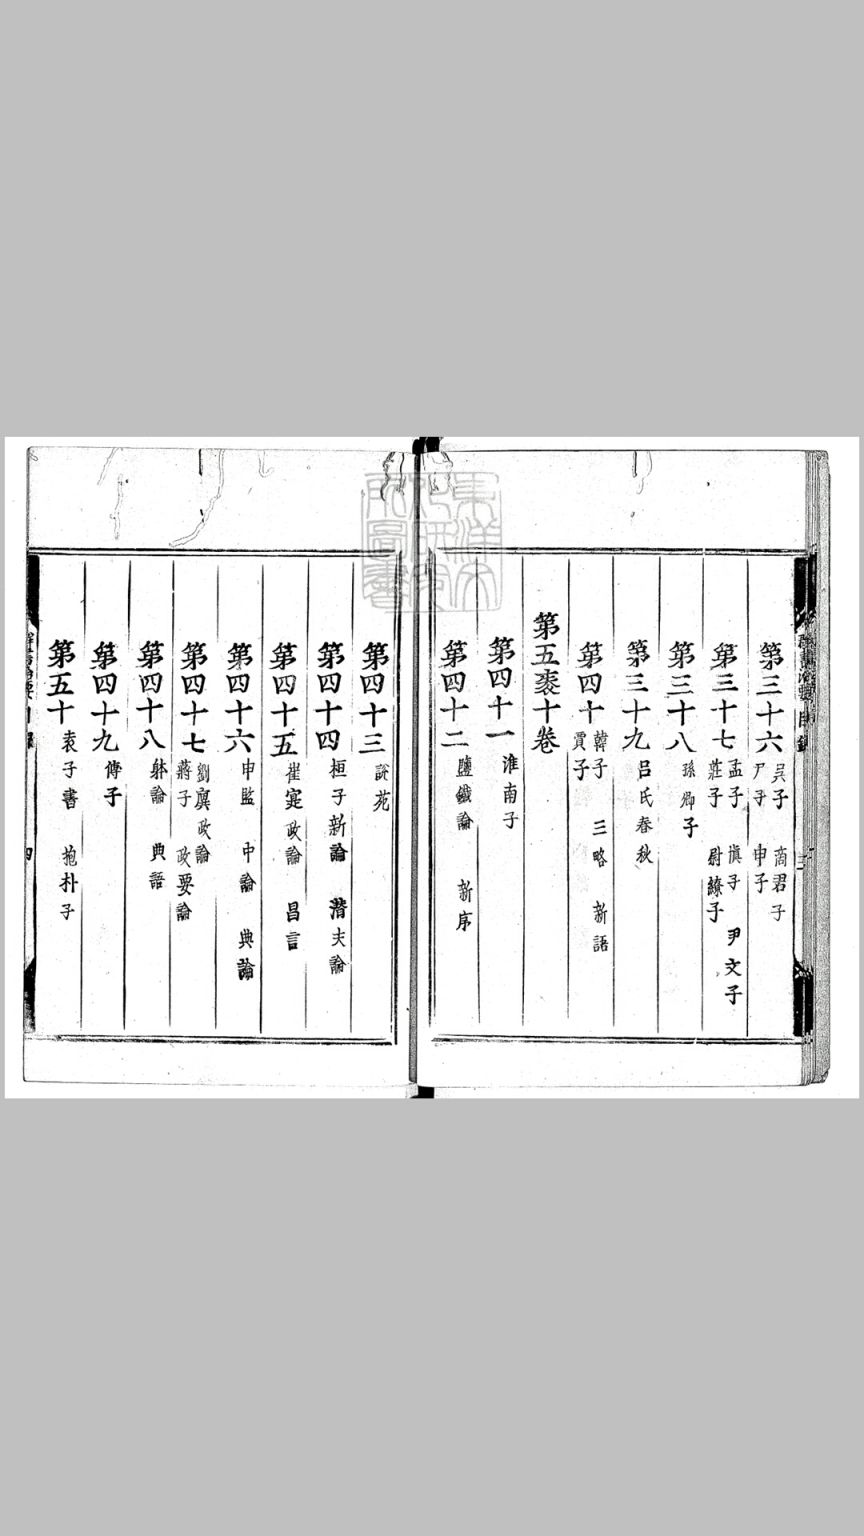 第三十六 吳子 商君子
尸子 申子
第三十七 孟子 愼子 尹文子
莊子 尉繚子
第三十八 孫卿子
第三十九 呂氏春秋
第四十 韓子 三略 新語
賈子
第五袠十卷
第四十一 淮南子
第四十二 鹽鐵論 新序
第四十三 說苑
第四十四 桓子新論 潛夫論
第四十五 崔寔政論 昌言
第四十六 申鑒 中論 典論
第四十七 劉廙政論
蔣子 政要論
第四十八 體論 典語
第四十九 傅子
第五十 袁子書 抱朴子